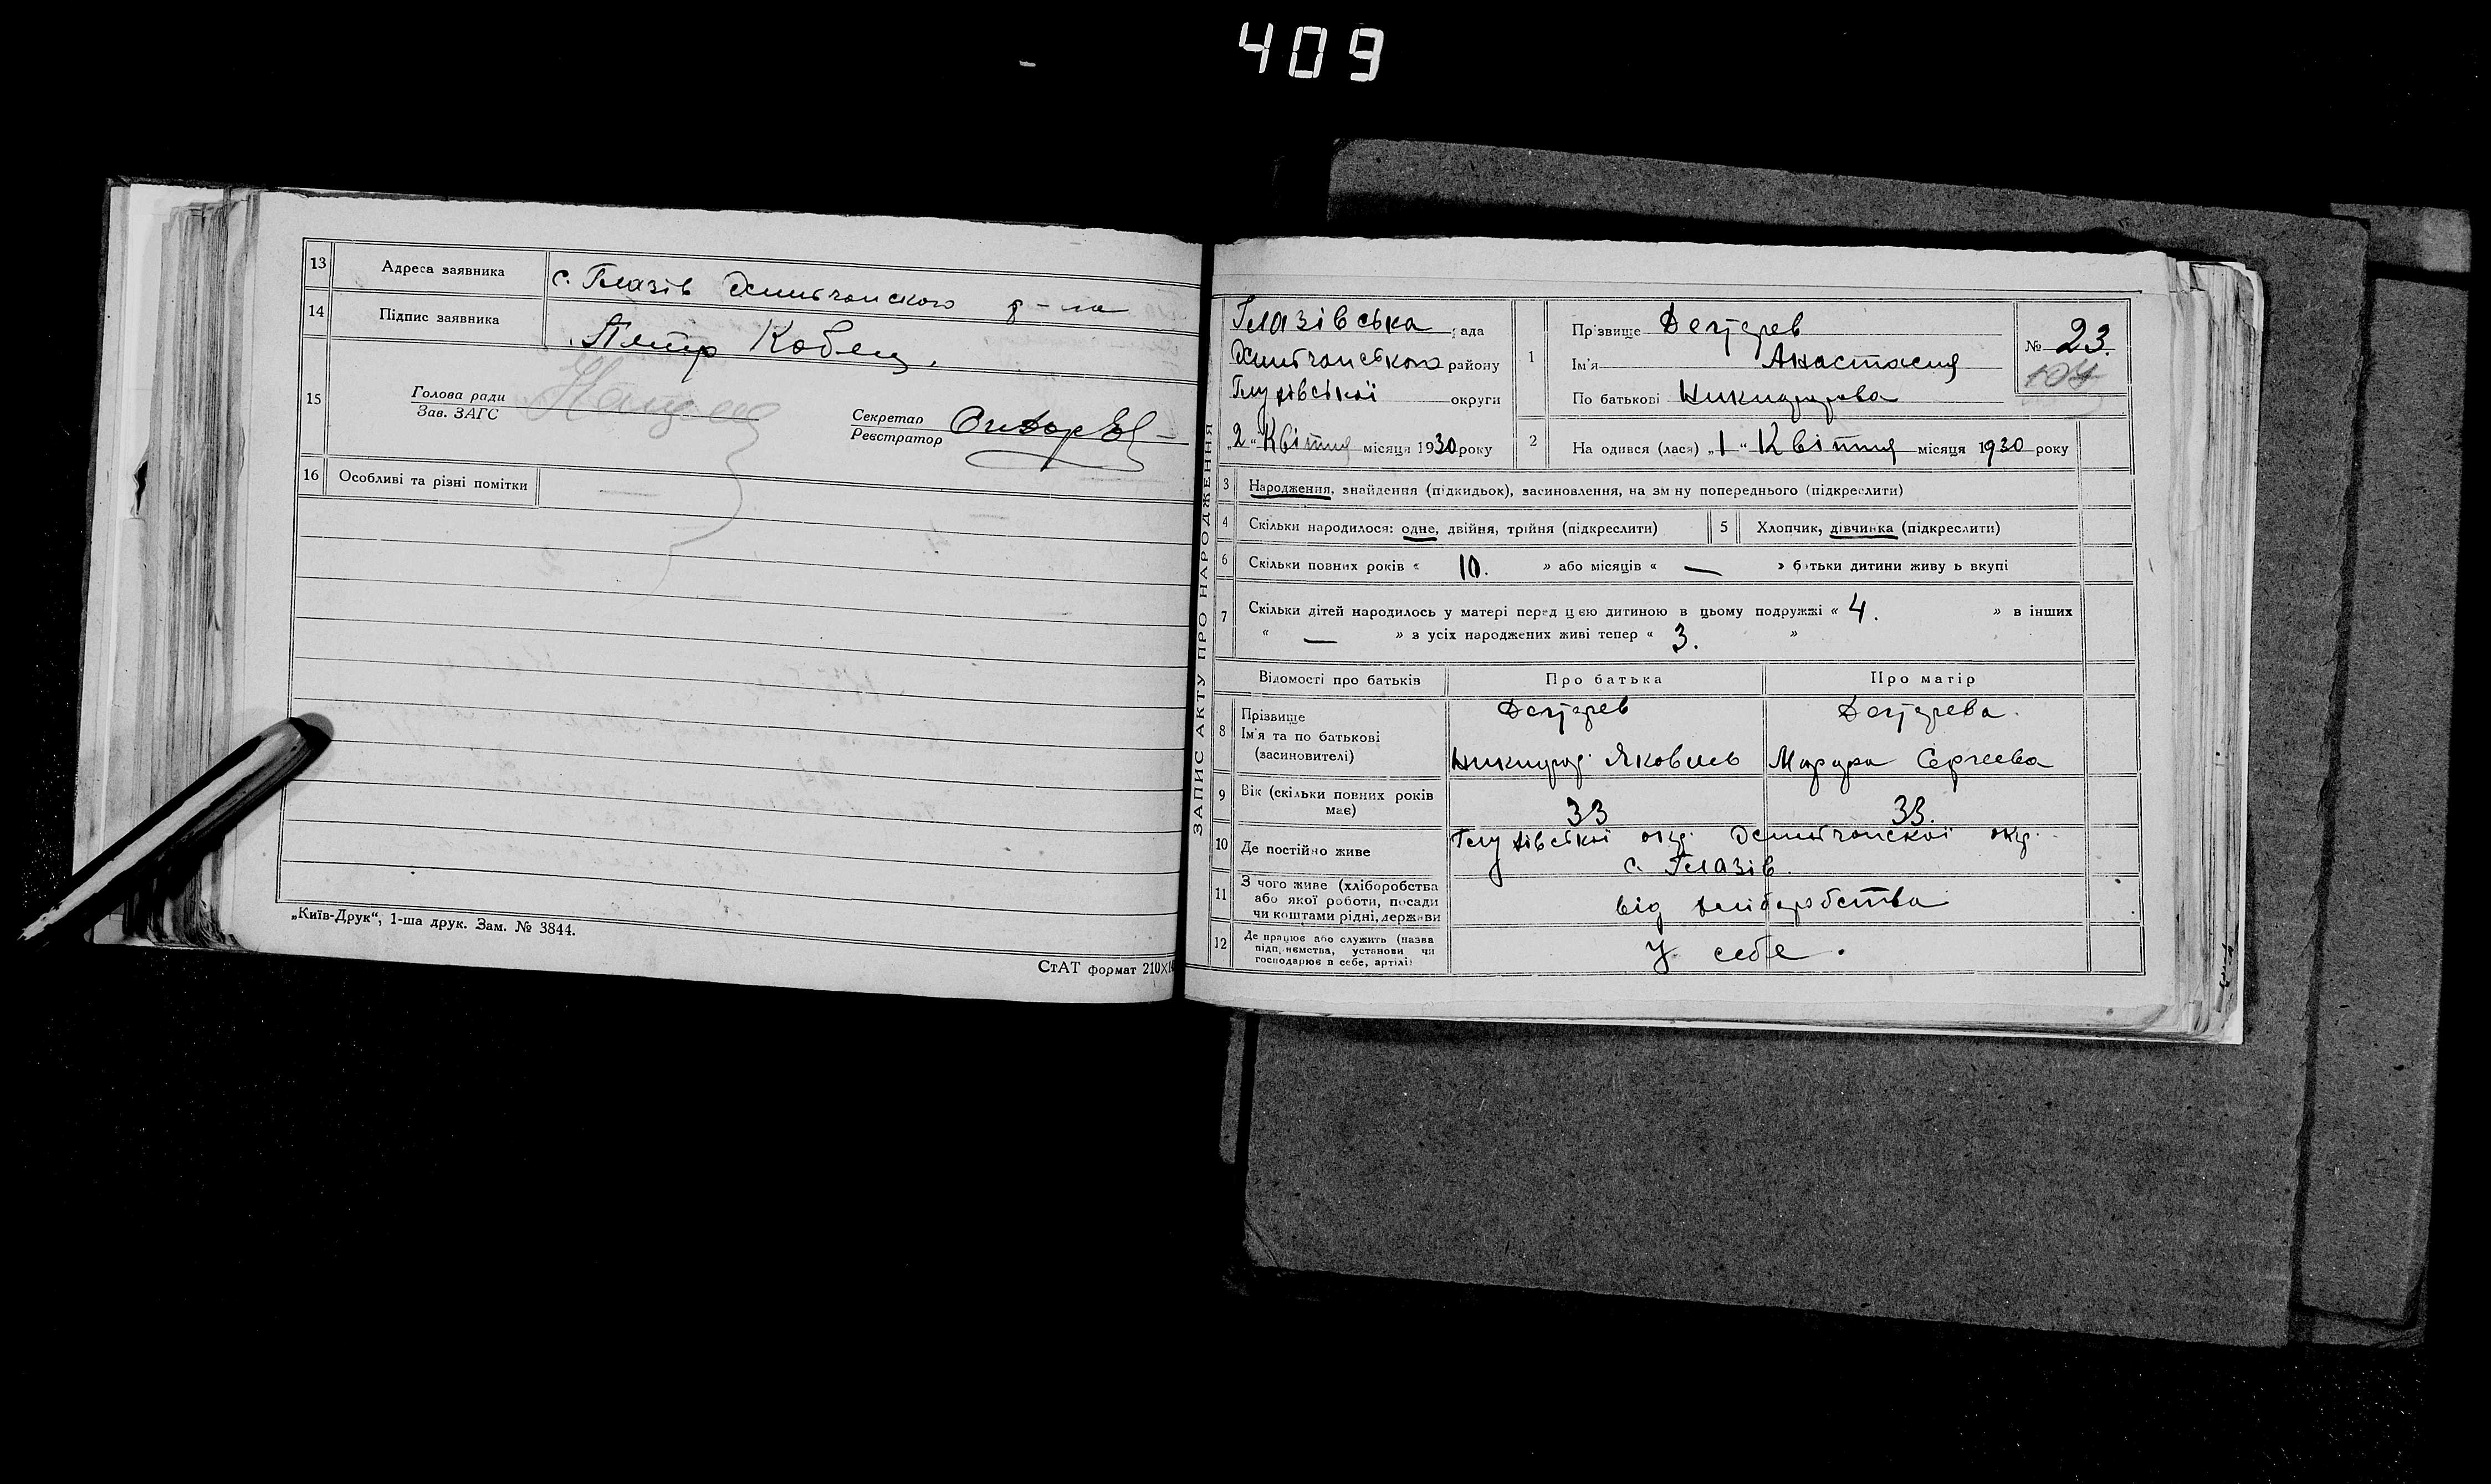 409
13 Адреса заявника с. Глазів
14 Підпис заявника Петр Кобец.
15 Голова ради
Зав. ЗАГС
Секретар
Реєстратор
16 Особливі та різні помітки —
„Київ-Друк“, 1-ша друк. Зам. № 3844.
СтАТ формат 210×1
ЗАПИС АКТУ ПРО НАРОДЖЕННЯ
Глазівська рада
району
Глухівської округи
„2“ Квітня місяця 1930 року
1 Прізвище Дегтярев
Ім'я Анастасия
По батькові
№ 23.
104
2 На одився (лася) „1“ Квітня місяця 1930 року
3 Народження, знайдення (підкидьок), засиновлення, на зм ну попереднього (підкреслити)
4 Скільки народилося: одне, двійня, трійня (підкреслити) 5 Хлопчик, дівчинка (підкреслити)
6 Скільки повних років « 10. » або місяців « — » батьки дитини живу ь вкупі
7 Скільки дітей народилось у матері перед цією дитиною в цьому подружжі « 4. » в інших
« — » з усіх народжених живі тепер « 3. »
Відомості про батьків Про батька Про матір
8 Прізвище
Ім'я та по батькові
(засиновителі)
Дегтярев
Яковлев
Дегтярева.
Сергеева
9 Вік (скільки повних років
має)
33 33.
10 Де постійно живе Глухівської окр.
с. Глазів.
11 З чого живе (хліборобства
або якої роботи, посади
чи коштами рідні, держави
від хліборобства
12 Де працює або служить (назва
підп, немства, установи чи
господарює в себе, артілі)
У себе.